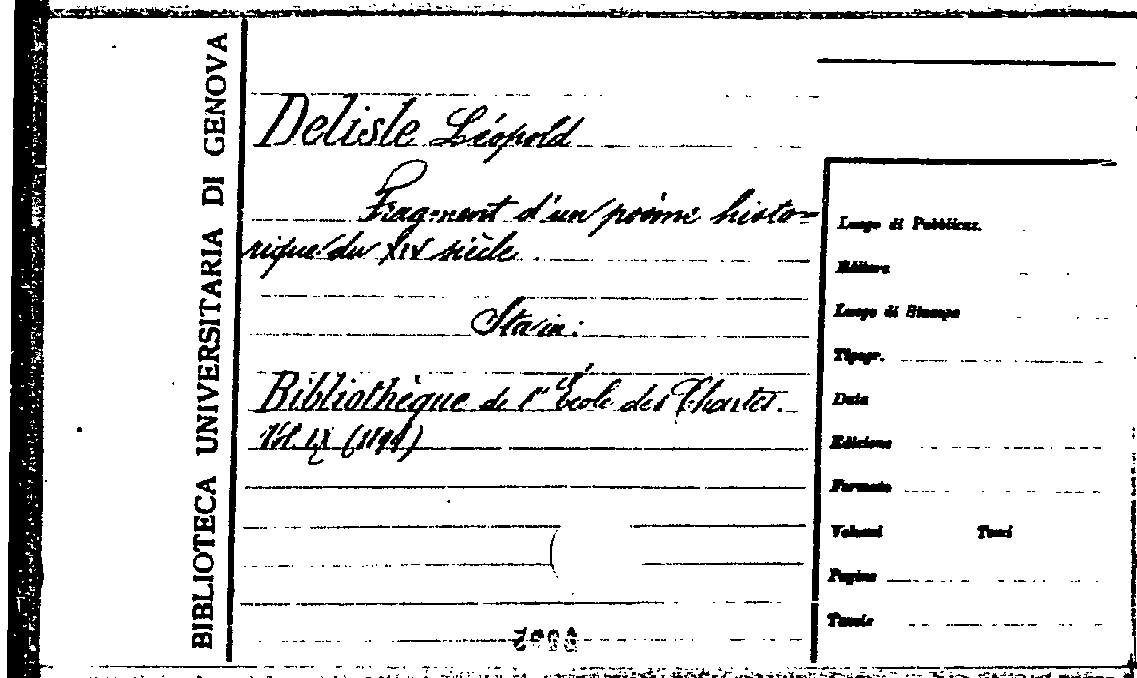 BIBLIOTECA UNIVERSITARIA DI GENOVA
Delisle Léopold
Fragment d'un poème histo=
rique du XIV siècle.
Sta in:
Bibliothèque de l'École des Chartes.
Vol. LX
Luogo di Pubblicaz.
Editore
Luogo di Stampa
Tipogr.
Data
Edizione
Formato
Volumi Tomi
Pagine
Tavole